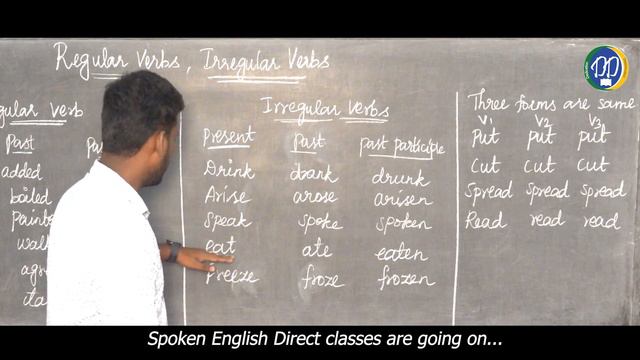 Regular Verbs, Irregular Verbs
gular Verb
Past
added
boiled
Irregular Verbs
Present Past past participle
Drink drank drunk
Arise arose arisen
Speak spoke spoken
eat ate eaten
Freeze froze frozen
Three forms are same
V1 V2 V3
Put put put
Cut cut cut
Spread spread spread
Read read read
Spoken English Direct classes are going on...